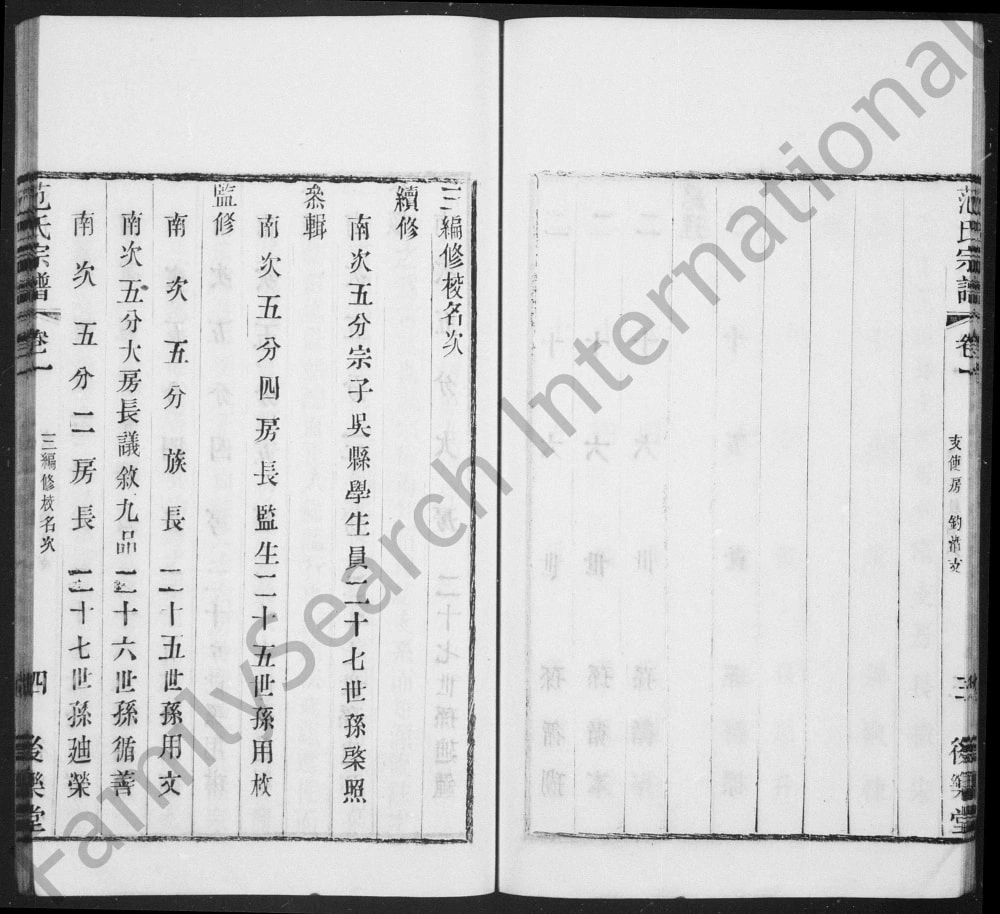 范氏宗譜
卷一
支使房
鈞清支
三
後樂堂
三編修校名次
續修
南次五分宗子吳縣學生員二十七世孫棨照
纂輯
南次五分四房長監生二十五世孫用枚
監修
南次五分族長二十五世孫用文
南次五分大房長議敘九品二十六世孫循善
南次五分二房長二十七世孫廸榮
范氏宗譜
卷一
三編修校名次
四
後樂堂
FamilySearch International